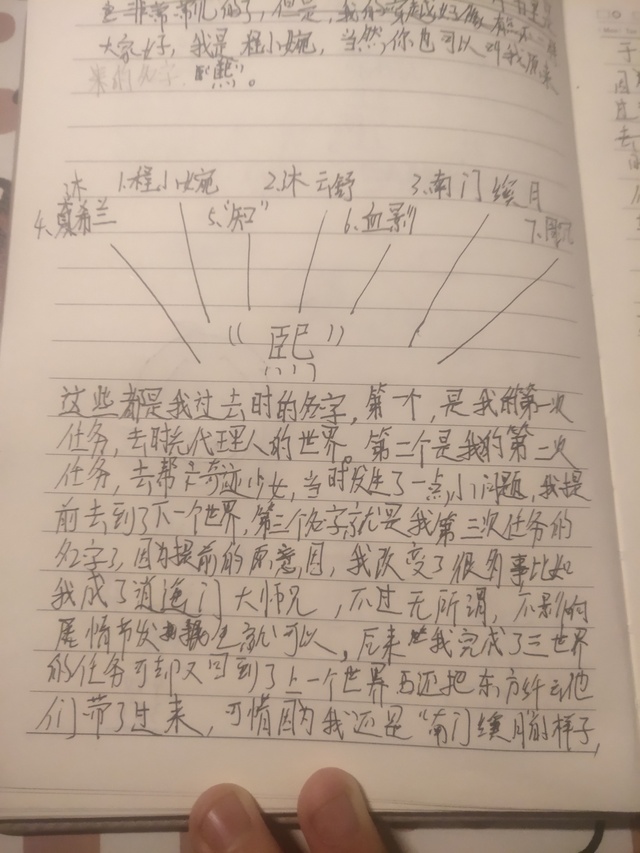 也非常常见的了，但是，我的
大家好，我是程小婉，当然，你也可以叫我原来
来的名字，"熙"。
1.程小婉 2.沐云舒 3.南门绫月
4.莫希兰 5."知" 6.血影 7.
"熙"
这些都是我过去时的名字，第一个，是我的第一次
任务，去时光代理人的世界。第二个是我的第二次
任务，去帮奇迹少女，当时发生了一点小问题，我提
前去到了下一个世界，第三个名字就是我第三次任务的
名字了，因为提前的原因，我改变了很多事比如
我成了逍遥门大师兄，不过无所谓，不影响
尾情节发生就可以，后来我完成了三世界
的任务可却又回到了上一个世界还把东方纤云他
们带了过来，可惜因为我还是"南门绫月"的样子，